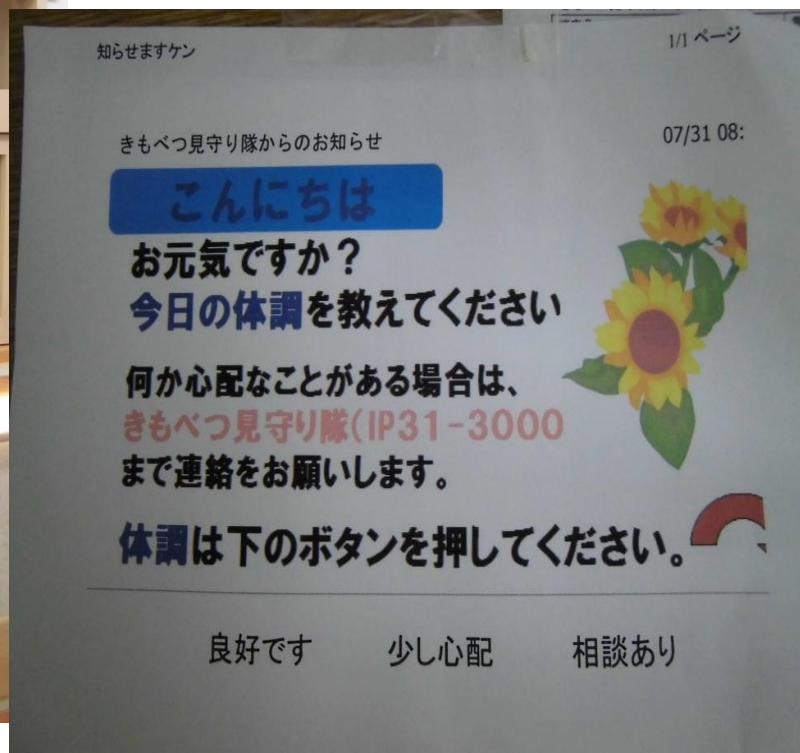 知らせますケン
1/1 ページ
きもべつ見守り隊からのお知らせ
07/31 08:
こんにちは
お元気ですか？
今日の体調を教えてください
何か心配なことがある場合は、
きもべつ見守り隊(IP31-3000
まで連絡をお願いします。
体調は下のボタンを押してください。
良好です 少し心配 相談あり